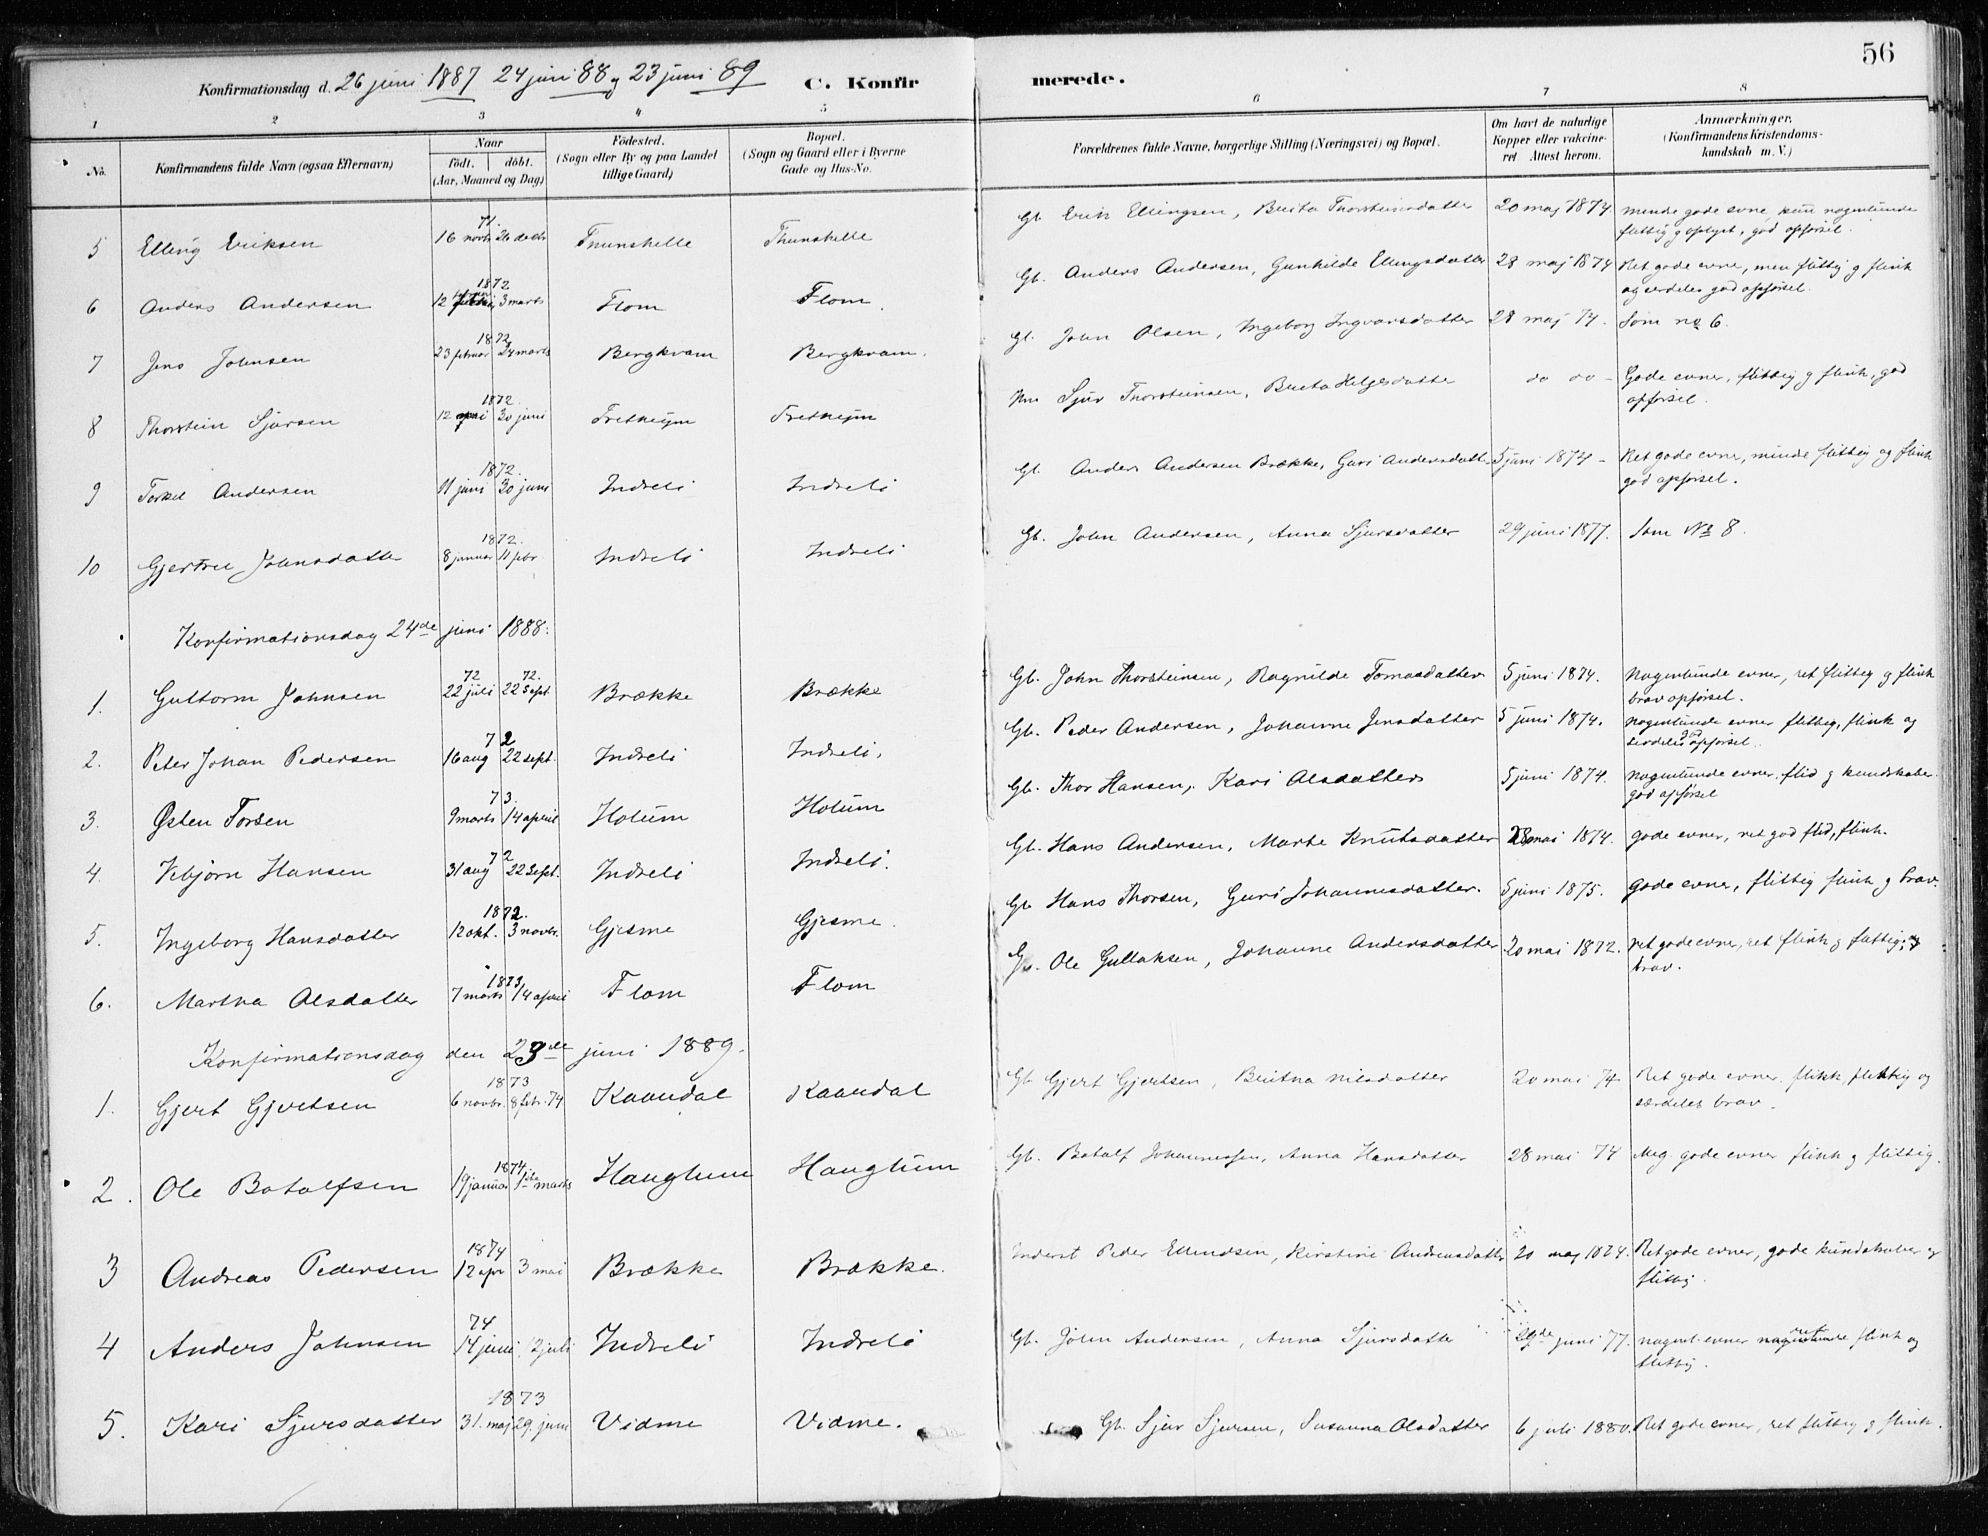 56
Konfirmationsdag d. 26 juni 1887 24 juni 88 og 23 juni 89 C. Konfirmerede.
1 2 3 4 5 6 7 8
No. Konfirmandens fulde Navn (ogsaa Efternavn) Naar födt. döbt. (Aar, Maaned og Dag) Födested. (Sogn eller By og paa Landet tillige Gaard) Bopæl. (Sogn og Gaard eller i Byerne Gade og Hus-No. Forældrenes fulde Navne, borgerlige Stilling (Næringsvei) og Bopæl. Om havt de naturlige Kopper eller vakcineret Attest herom. Anmærkninger. (Konfirmandens Kristendomskundskab m. V.)
5 Elling Eriksen 71. 16 novbr 26 decbr Thunshelle Thunshelle Gb. Erik Ellingsen, Brita Thorsteinsdatter 20 maj 1874. mindre gode evne, kun nogenlunde
flittig g oplyst, god opførsel.
6 Anders Andersen 1872 12 februar 3 marts Flom Flom. Gb. Anders Andersen, Gunhilde Ellingsdatter 28 maj 1874 Ret gode evne, men flittig g flink
og serdeles god opførsel.
7 Jens Johnsen 1872 23 februar 24 marts Bergkvam Bergkvam. Gb. John Olsen, Ingeborg Ingvarsdatter 28 maj 74. Som no 6.
8 Thorstein Sjursen 1872. 12 juni 30 juni Fretheijm Fretheijm Sjur Thorsteinsen, Brita Helgesdatter do do - Gode evner, flittig g flink, god
opførsel.
9 Torkel Andersen 1872. 11 juni 30 juni Indreli Indreli Gb. Anders Andersen Brække, Guri Andersdatt. 5 juni 1874 - Ret gode evner, mindre flittig og flink
god opførsel.
10 Gjertrue Johnsdatte 1872. 8 januar 11 febr Indreli Indreli Gb. John Andersen, Anna Sjursdatter 29 juni 1877. Som No 8.
Konfirmationsdag 24de juni 1888.
1. Guttorm Johnsen 72 22 juli 72. 22 sept. Brække Brække Gb. John Thorsteinsen, Ragnilde Tomasdatter 5 juni 1874. Nogenlunde evner, ret flittig g flink
brav opførsel.
2. Peter Johan Pedersen 72 16 aug 22 sept. Indreli Indreli. Gb. Peder Andersen, Johanne Jensdatter 5 juni 1874. nogenlunde evner flittig, flink og
serdeles god opførsel.
3. Østen Torsen 73. 9 marts 14 april Holum Holum Gb. Thor Hansen, Kari Olsdatter 5 juni 1874. Nogenlunde evner, flid g kundskaber
god opførsel
4. Vebjørn Hansen 72 31 aug 22 sept. Indreli Indreli. Gb. Hans Andersen, Marte Knutsdatter 28 mai 1874. gode evner, ret god flid, flink.
5. Ingeborg Hansdatter 1872. 12 okt. 3 novbr. Gjesme Gjesme. Gb. Hans Thorsen, Guri Johannesdatter. 5 juni 1875. gode evner, flittig flink g brav.
6. Martha Olsdatter 1873 7 marts 14 april Flom Flom Gb. Ole Gullaksen, Johanne Andersdatter 20 mai 1872. ret gode evner, ret flink g flittig, og
brav.
Konfirmationsdag den 23de juni 1889.
1. Gjert Gjertsen 1873 6 novbr. 8 febr. 74 Kaardal Kaardal Gb. Gjert Gjertsen, Britha Nilsdatter 20 mai 74 Ret gode evner. flikk, flekktig og
særdeles brav.
2. Ole Botolfsen 1874. 19 januar 1ste marts Haugtum Haugtum Gb. Botolf Johannessen, Anna Hansdatter 28 mai 74 Meg. gode evner flink g flittig.
3 Andreas Pedersen 1874 12 apr 3 mai Brække Brække. Inderst Peder Ellendsen, Kirstine Andreasdatter 20 maj 1874. Ret gode evner, gode kundskaber og
flittig.
4 Anders Johnsen 74 14 juni 12 juli Indreli Indreli Gb. John Andersen, Anna Sjursdatter 29de juni 77. nogenl. evner ret nogenlunde flink og
flittig.
5. Kari Sjursdatter 1873 31. maj 29. juni Vidme Vidme. Gb. Sjur Sjursen, Susanna Olsdatter 6 juli 1880. Ret gode evner, ret flittig g flink.